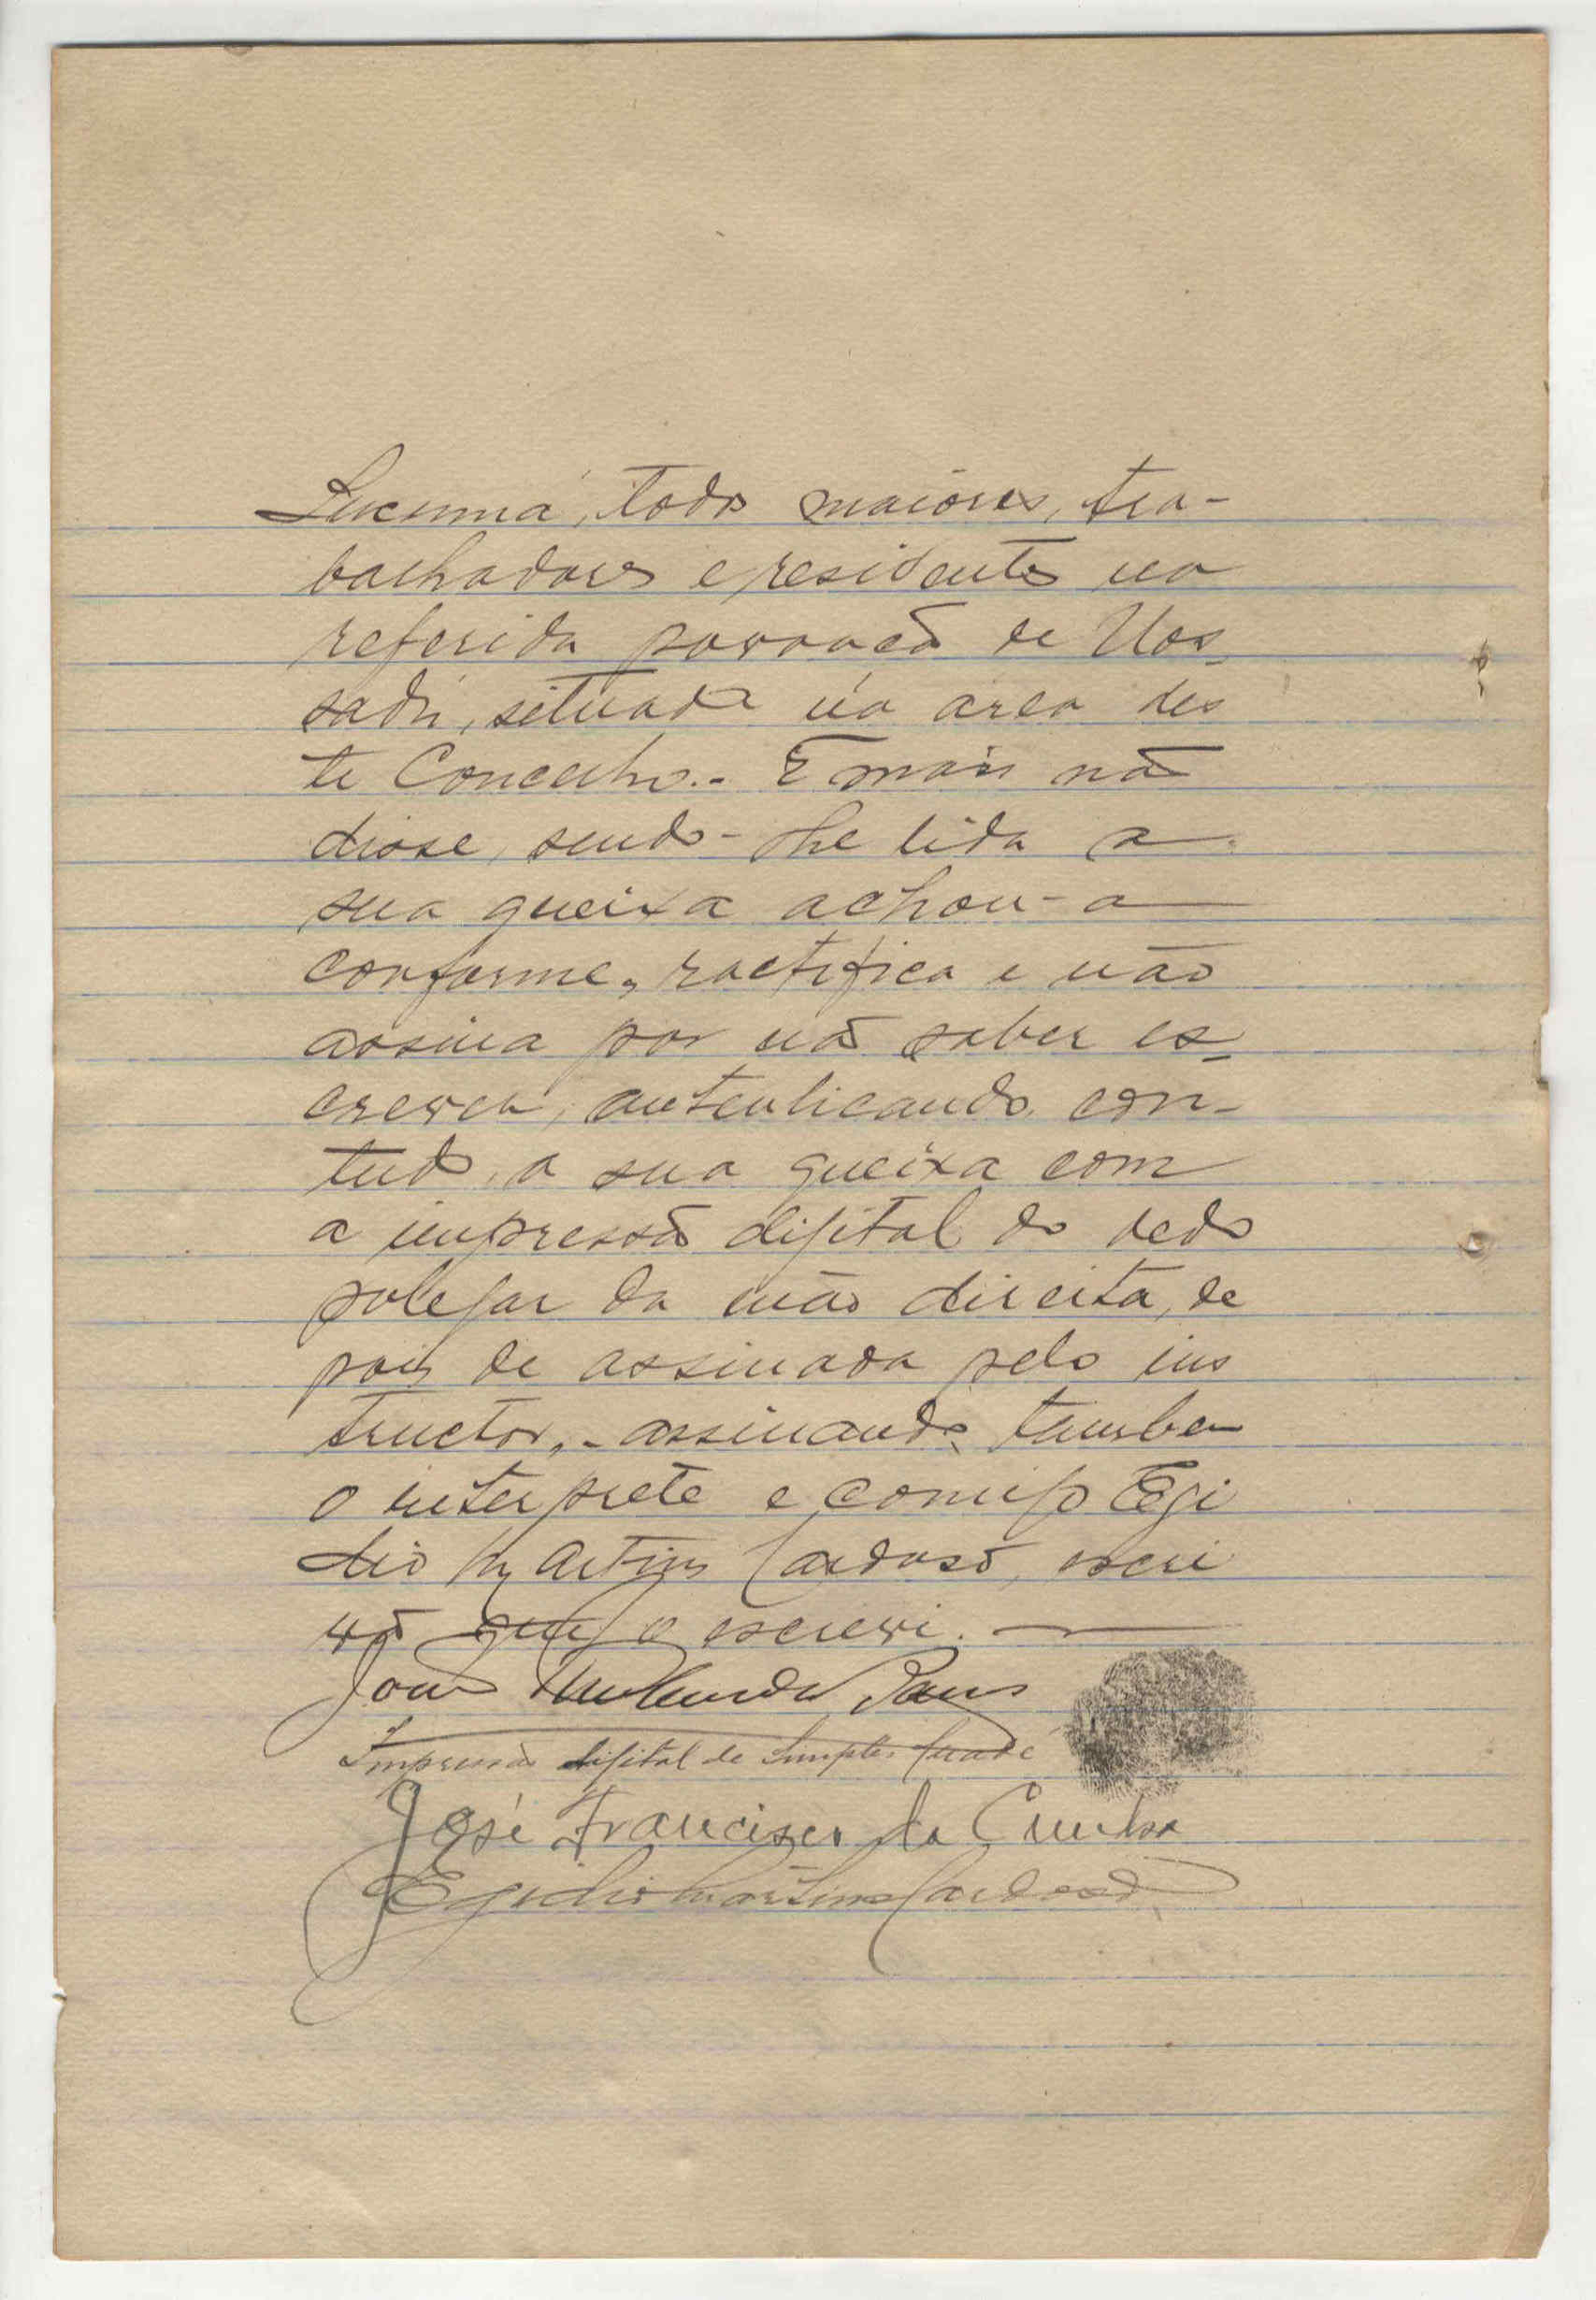 todos maiores, tra-
balhadores e residentes na
referida povoação de Uos
sadi, situada na area des
te Concelho.- E mais não
disse, sendo-lhe lida a
sua queixa achou-a
conforme, ractifica e não
assina por não saber es-
crever, autenticando con-
tudo, a sua queixa com
a impressão digital do dedo
polegar da mão direita, de
pois de assinada pelo ins
tructor,- assinando tambem
o interprete e comigo Egi
dio Martins Cardoso, escri
vão que o escrevi.
Impressão digital de Simples
José Francisco da Cunha
Egidio Martins Cardoso